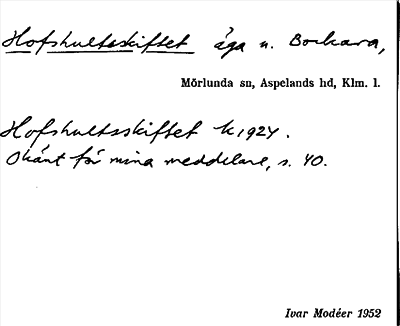 Hofshultsskiftet äga u. Bockara,
Mörlunda sn, Aspelands hd, Klm. l.
Hofshultsskiftet k 1924.
Okänt för mina meddelare, s. 40.
Ivar Modéer 1952